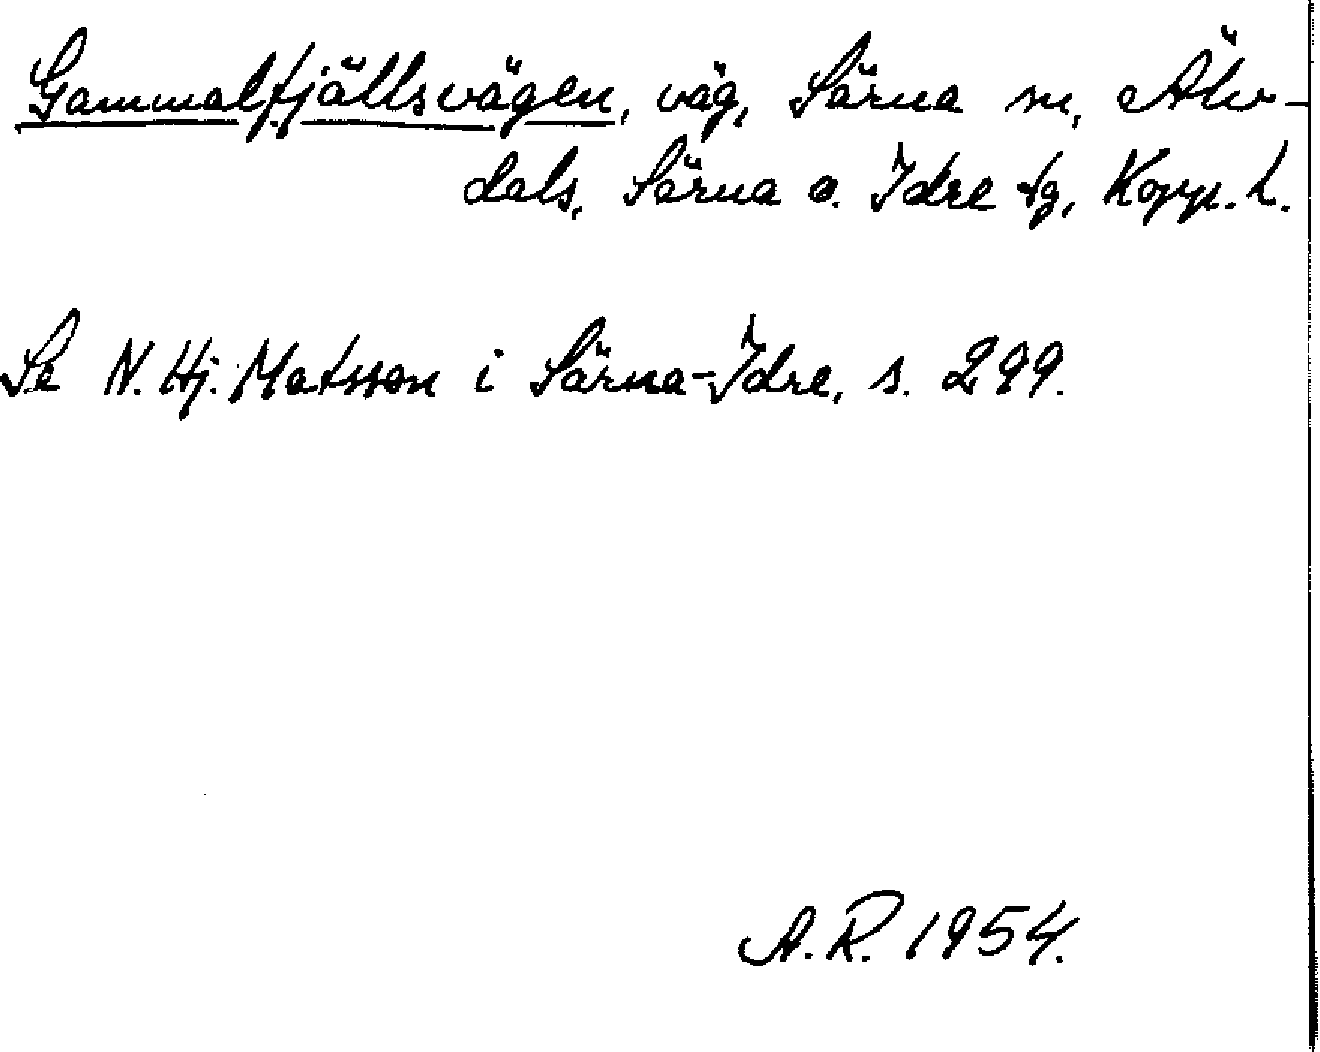 Gammalfjällsvägen, väg, Särna sn, Älv-
dals, Särna o. Idre tg, Kopp. l.
Se N. Hj. Matsson i Särna-Idre, s. 299.
A.R. 1954.